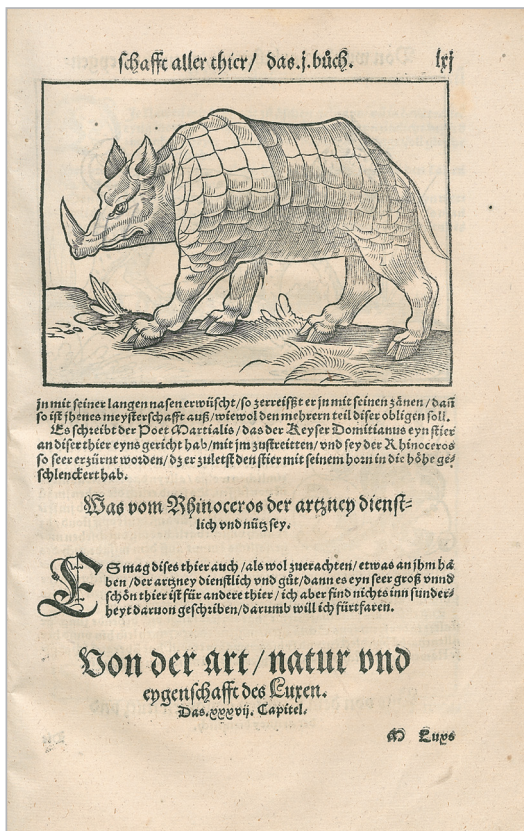 schafft aller thier/ das.j.bůch. lxj
jn mit seiner langen nasen erwüscht/so zerreisst er jn mit seinen zänen/dañ
so ist jhenes meysterschafft auß/wiewol den mehrern teil diser obligen soll.
Es schreibt der Poet Martialis/das der Keyser Domitianus eyn stier
an diser thier eyns gericht hab/mit jm zustreitten/vnd sey der Rhinoceros
so seer erzürnt worden/dz er zuletst den stier mit seinem horn in die höhe ge⸗
schlenckert hab.
Was vom Rhinoceros der artzney dienst⸗
lich vnd nütz sey.
ES mag dises thier auch/als wol zuerachten/etwas an jhm hа
ben/der artzney dienstlich vnd gůt/dann es eyn seer groß vnnd
schön thier ist für andere thier/ich aber find nichts inn sunder⸗
heyt daruon geschriben/darumb will ich fürtfaren.
Von der art/natur vnd
eygenschafft des Luxen.
Das.xxxvij. Capitel.
M Luxs